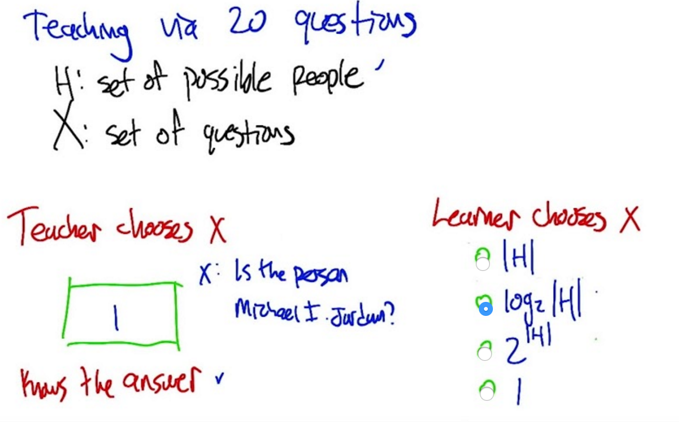 Teaching via 20 questions
H: set of possible people
X: set of questions
Teacher chooses X
1
X: Is the person
Michael I. Jordan?
Knows the answer
Learner chooses X
|H|
log₂ |H|
2^|H|
1